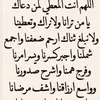 اللهم أنت المعطي لمن دعاك
يا من ترانا ولا نراك وتعطينا
ولا يبلغ ثناك ارحم ضعفنا واجمع
شملنا واجبر كسرنا ويسر امرنا
وفرج همنا واشرح صدورنا
ووسع ارزاقنا واشف مرضانا